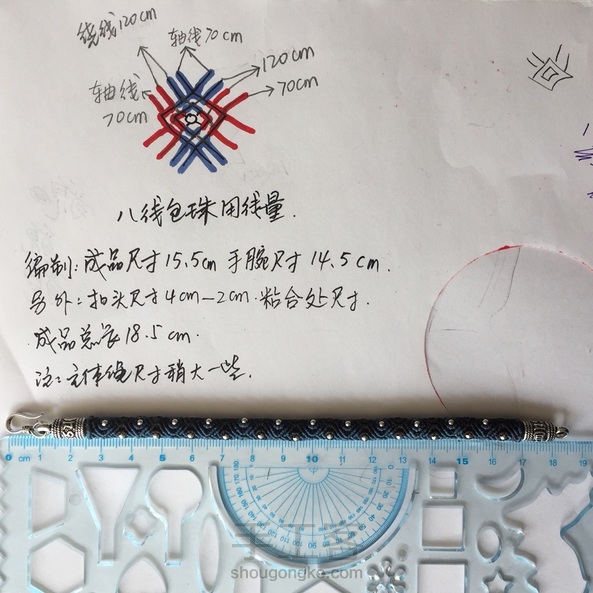 绕线120cm
轴线70cm
120cm
70cm
轴线
70cm
八线包珠用线量.
编制:成品尺寸15.5cm 手腕尺寸14.5cm.
另外:扣头尺寸4cm-2cm.粘合处尺寸.
成品总长18.5cm.
注:主体绳尺寸稍大一些.
0 cm 1 2 3 4 5 6 7 8 9 10 11 12 13 14 15 16 17 18 19
手工客
shougongke.com